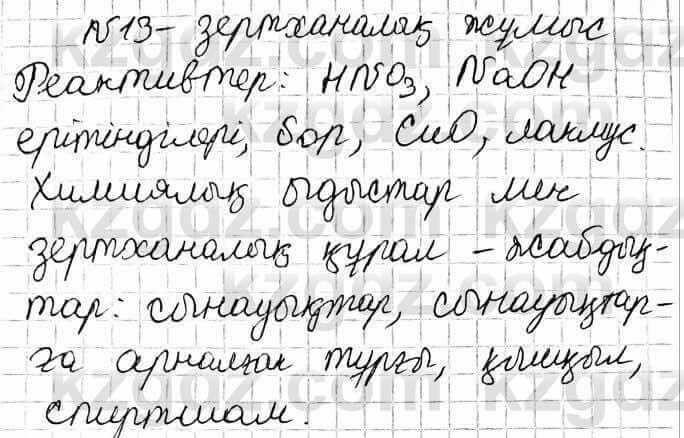 №13- зертханалық жұмыс
Реактивтер: HNO₃, NaOH
ерітінділері, бор, CuO, лакмус.
Химиялық ыдыстар мен
зертханалық құрал - жабдық-
тар: сынауықтар, сынауықтар-
ға арналған тұрғы, қышқыл,
спиртшам.
kzgdz.com